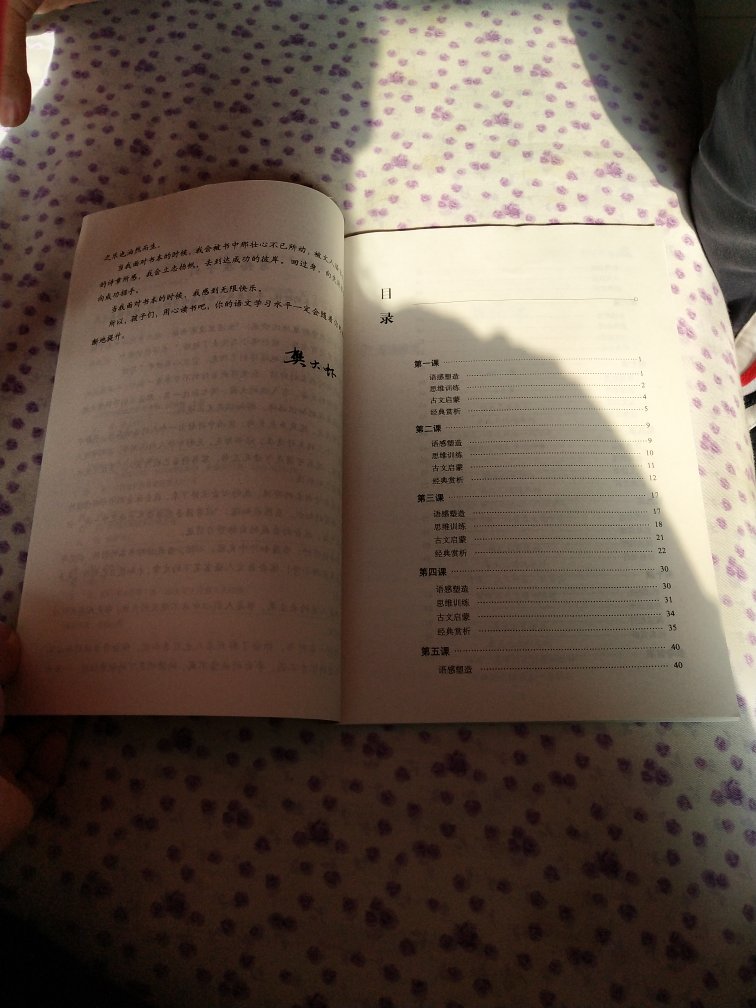 之乐也油然而生。
当我面对书本的时候，我会被书中那壮心不已所动，被文人
的诗章所感，我会立志扬帆，去到达成功的彼岸。回过身，
向成功招手。
当我面对书本的时候，我感到无限快乐。
所以，孩子们，用心读书吧，你的语文学习水平一定会随着
断地提升。
樊大
目
录
第一课 1
语感塑造 1
思维训练 2
古文启蒙 4
经典赏析 5
第二课 9
语感塑造 9
思维训练 10
古文启蒙 11
经典赏析 12
第三课 17
语感塑造 17
思维训练 18
古文启蒙 21
经典赏析 22
第四课 30
语感塑造 30
思维训练 31
古文启蒙 34
经典赏析 35
第五课 40
语感塑造 40